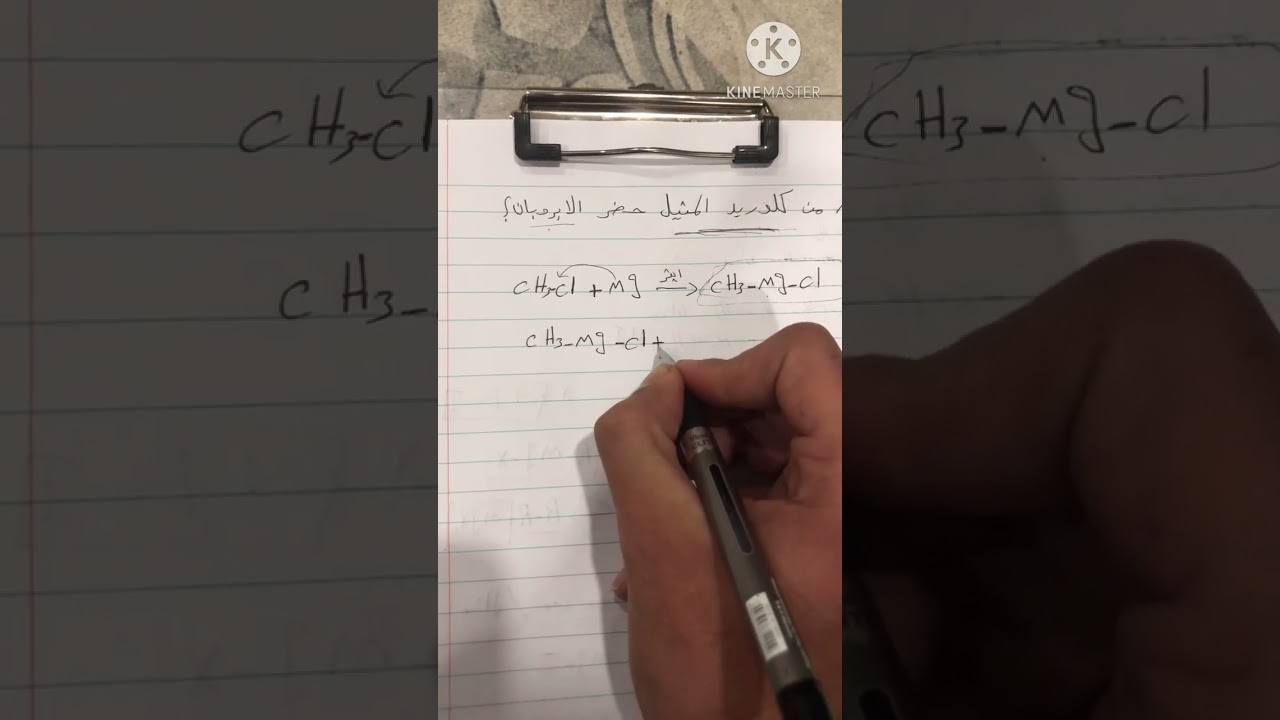 KINEMASTER
من كلوريد المثيل حضر الايروبان؟
CH3-Cl + Mg ايثر → CH3-Mg-Cl
CH3-Mg-Cl +